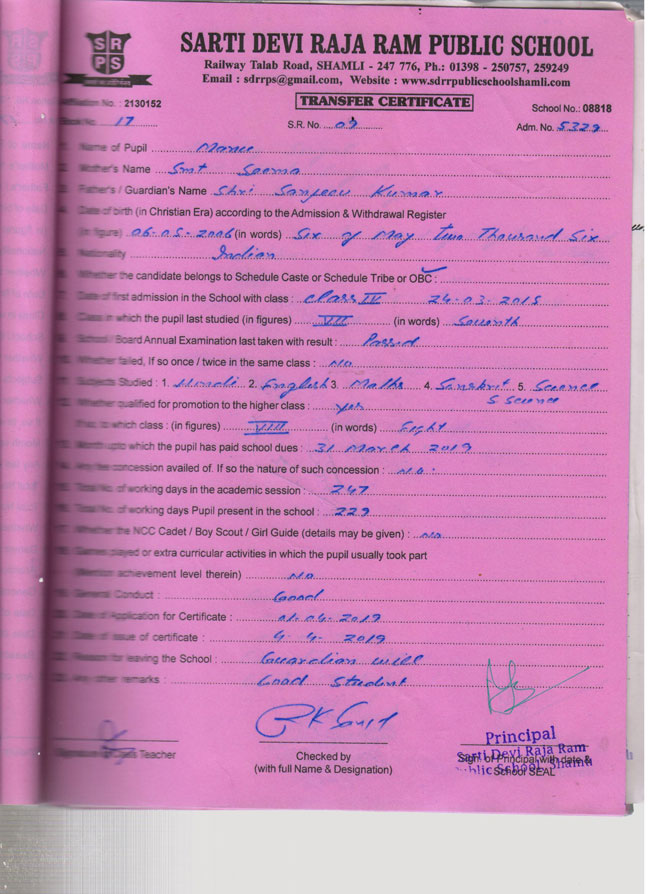 SRPS
SARTI DEVI RAJA RAM PUBLIC SCHOOL
Railway Talab Road, SHAMLI - 247 776, Ph.: 01398 - 250757, 259249
Email : sdrrps@gmail.com, Website : www.sdrrpublicschoolshamli.com
Affiliation No. : 2130152
TRANSFER CERTIFICATE
School No.: 08818
Book No. 17
S.R. No. 09
Adm. No. 5329
1. Name of Pupil
2. Mother's Name Smt Seema
3. Father's / Guardian's Name Shri Sanjeev Kumar
4. Date of birth (in Christian Era) according to the Admission & Withdrawal Register
(in figure) 06-05-2006 (in words) Six of May Two Thousand Six
5. Nationality Indian
6. Whether the candidate belongs to Schedule Caste or Schedule Tribe or OBC :
7. Date of first admission in the School with class : class IV 24-03-2015
8. Class in which the pupil last studied (in figures) VII (in words) Seventh
9. School / Board Annual Examination last taken with result : Passed
10. Whether failed, If so once / twice in the same class : No
11. Subjects Studied : 1. Hindi 2. English 3. Maths 4. Sanskrit 5. Science
S Science
12. Whether qualified for promotion to the higher class : yes
If so, to which class : (in figures) VIII (in words) Eight
13. Month upto which the pupil has paid school dues : 31 March 2019
14. Any fee concession availed of. If so the nature of such concession : No.
15. Total No. of working days in the academic session : 247
16. Total No. of working days Pupil present in the school : 229
17. Whether the NCC Cadet / Boy Scout / Girl Guide (details may be given) : No
18. Games played or extra curricular activities in which the pupil usually took part
(Mention achievement level therein) No
19. General Conduct : Good
20. Date of Application for Certificate : 01-04-2019
21. Date of issue of certificate : 4-4-2019
22. Reason for leaving the School : Guardian will
23. Any other remarks : Good Student
Principal
Sarti Devi Raja Ram
Public School, Shamli
Signature of Class Teacher
Checked by
(with full Name & Designation)
Sign. of Principal with date &
School SEAL